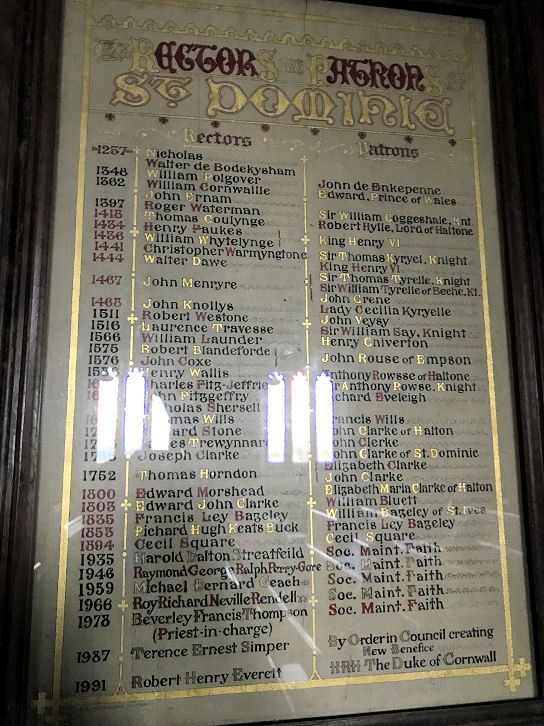 RECTORS and PATRONS of
ST DOMINIC
Rectors Patrons
1257 Nicholas
1348 Walter de Bodekysham
1362 William Polgover
William Cornwaille John de Enkepenne
John Ernam Edward, Prince of Wales
1397 Roger Waterman
1418 Thomas Coulynge Sir William Coggeshale, Knt
1434 Henry Faukes Robert Hylle, Lord of Haltone
1436 William Whytelynge King Henry VI
1441 Christopher Warmyngtone
1444 Walter Dawe Sir Thomas Kyryel, Knight
King Henry VI
1467 John Menryre Sir Thomas Tyrelle, Knight
Sir William Tyrelle of Beche, Kt.
1468 John Knollys John Grene
1511 Robert Westone Lady Cecilia Kyryelle
1516 Laurence Travesse John Veysy
1566 William Launder Sir William Say, Knight
1575 Robert Blandeforde Henry Chiverton
1576 John Coxe John Rouse of Empson
Henry Wallis Anthony Rowsse of Haltone
Charles Fitz-Jeffrie Anthony Rowse, Knight
John Fitzgeffry Richard Eveleigh
Nicholas Shersell
Thomas Wills Francis Wills
Edward Stone John Clarke of Halton
James Trewynnard John Clerke
Joseph Clarke John Clarke of St. Dominic
Elizabeth Clarke
1752 Thomas Horndon John Clarke
1800 Edward Morshead Elizabeth Maria Clarke of Halton
1803 Edward John Clarke William Bluett
1835 Francis Ley Bazeley William Bazeley of St. Ives
1853 Richard Hugh Keats Buck Francis Ley Bazeley
1894 Cecil Square Cecil Square
1935 Harold Dalton Streatfeild Soc. Maint. Faith
1946 Raymond George Ralph Perry-Gore Soc. Maint. Faith
1959 Michael Bernard Geach Soc. Maint. Faith
1966 Roy Richard Neville Rendell Soc. Maint. Faith
1978 Beverley Francis Thompson Soc. Maint. Faith
(Priest-in-charge)
By Order in Council creating
1987 Terence Ernest Simper New Benefice
HRH The Duke of Cornwall
1991 Robert Henry Evereit